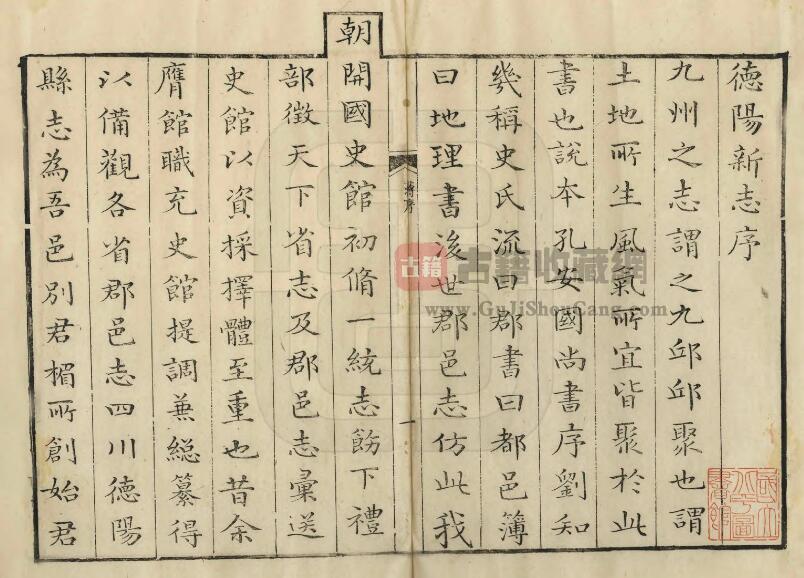 德陽新志序
九州之志謂之九邱邱聚也謂
土地所生風氣所宜皆聚於此
書也說本孔安國尚書序劉知
幾稱史氏流曰郡書曰都邑簿
曰地理書後世郡邑志仿此我
蔣序
一
朝
開國史館初脩一統志飭下禮
部徵天下省志及郡邑志彙送
史館以資採擇體至重也昔余
膺館職充史館提調兼總纂得
以備觀各省郡邑志四川德陽
縣志為吾邑別君楣所創始君
古籍 古籍收藏網
www.GuJiShouCang.com